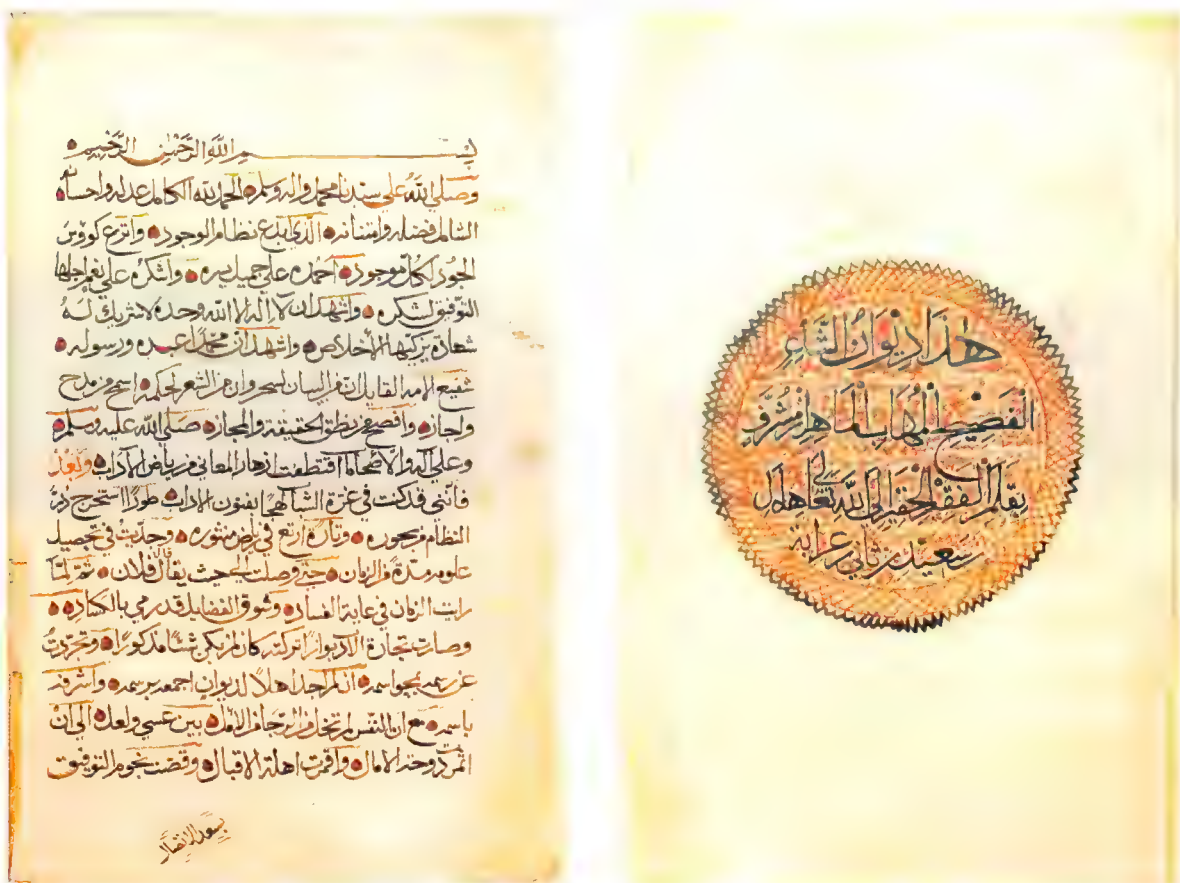 هذا ديوان الشاعر
الفصيح المهاب سالم هلال بن مشرف
بقلم الفقير الحقير الى الله تعالى هلال بن
سعيد بن ثاني عرابة
بسم الله الرحمن الرحيم
وصلي الله علي سيدنا محمد واله وسلم الحمد لله الكامل عدله واحسانه
الشامل فضله وامتنانه الذي ابدع نظام الوجود واترع كووس
الجود لكل موجود احمده علي جميل بره واشكره علي نعم اجلها
التوفيق لشكره واشهد ان لا اله الا الله وحده لا شريك له
شهادة يزكيها الأخلاص واشهد ان محمدا عبده ورسوله
شفيع الامه القايل ان من البيان لسحر وان من الشعر لحكمه اسمح من مدح
واجازه وافصح من نطق الحقيقة والمجازه صلي الله عليه وسلم
وعلي آله والأصحاب ما اقتطفت ازهار المعاني من رياض الآداب وبعد
فانني قد كنت في غرة الشباب بفنون الاداب طورا استخرج در
النظام من بحوره وتارة ارتع في رياض منثوره وجديت في تحصيل
علومه مدة من الزمان حتي وصلت الي حيث يقال قال فلان ثم لما
رايت الزمان في غاية الفساد وسوق الفضايل قد رمي بالكساد
وصارت تجارة الآداب كان لم يكن شيئا مذكورا وتجردت
عن رسمه اذ لم اجد اهلا لديوان اجمعه برسمه واشرفه
باسمه مع ان النفس لم تخل من الرجا والامل بين عسي ولعل الي ان
اثمرت دوحة الامال واقمرت اهلة الاقبال وقضت نجوم التوفيق
بسعد